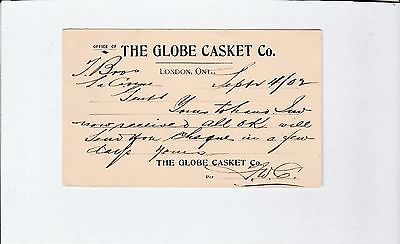 OFFICE OF THE GLOBE CASKET Co.
LONDON, ONT., Sept 4/02
T. Bros
Gents
Yours to hand
now received all OK will
Send you Cheque in a few
days Yours
THE GLOBE CASKET Co.
Per